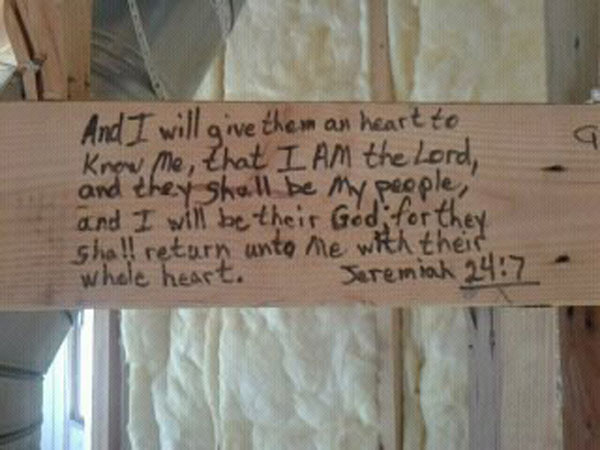 And I will give them an heart to
Know Me, that I AM the Lord,
and they shall be My people,
and I will be their God; for they
shall return unto Me with their
whole heart. Jeremiah 24:7